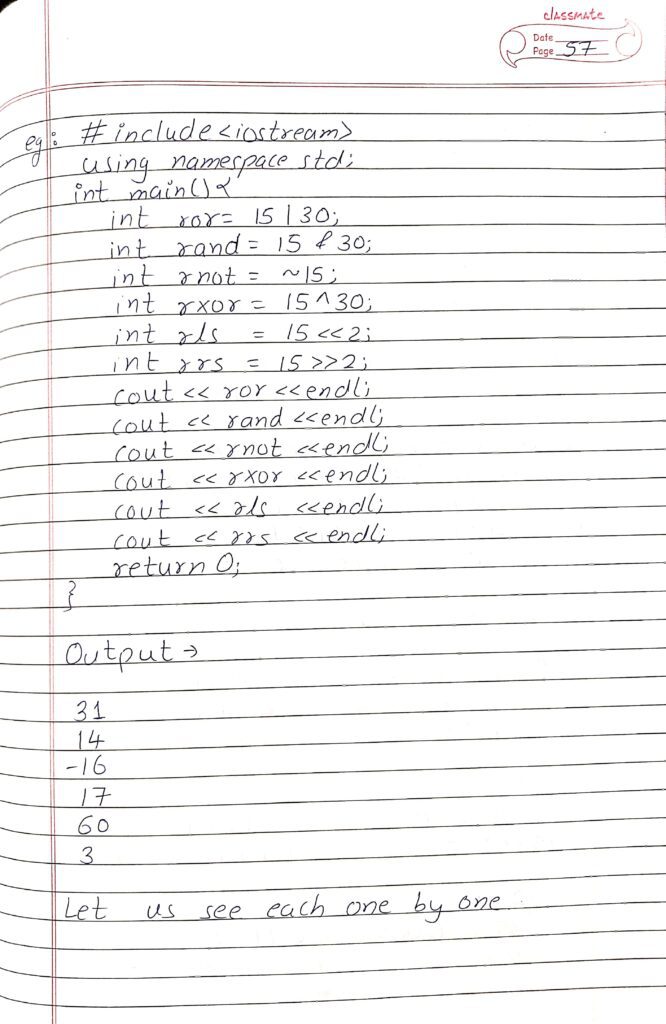 classmate
Date
Page 57
eg: # include <iostream>
using namespace std;
int main() {
int ror = 15 | 30;
int rand = 15 & 30;
int rnot = ~15;
int rxor = 15 ^ 30;
int rls = 15 << 2;
int rrs = 15 >> 2;
cout << ror << endl;
cout << rand << endl;
cout << rnot << endl;
cout << rxor << endl;
cout << rls << endl;
cout << rrs << endl;
return 0;
}
Output →
31
14
-16
17
60
3
Let us see each one by one